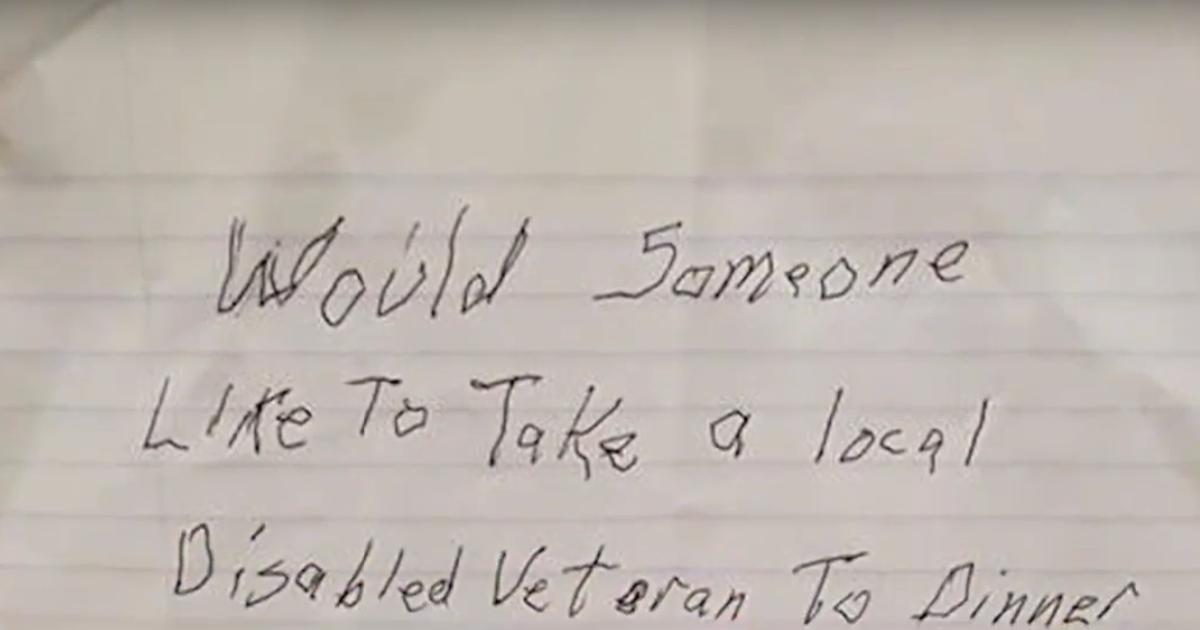 Would Someone
Like To Take a local
Disabled Veteran To Dinner